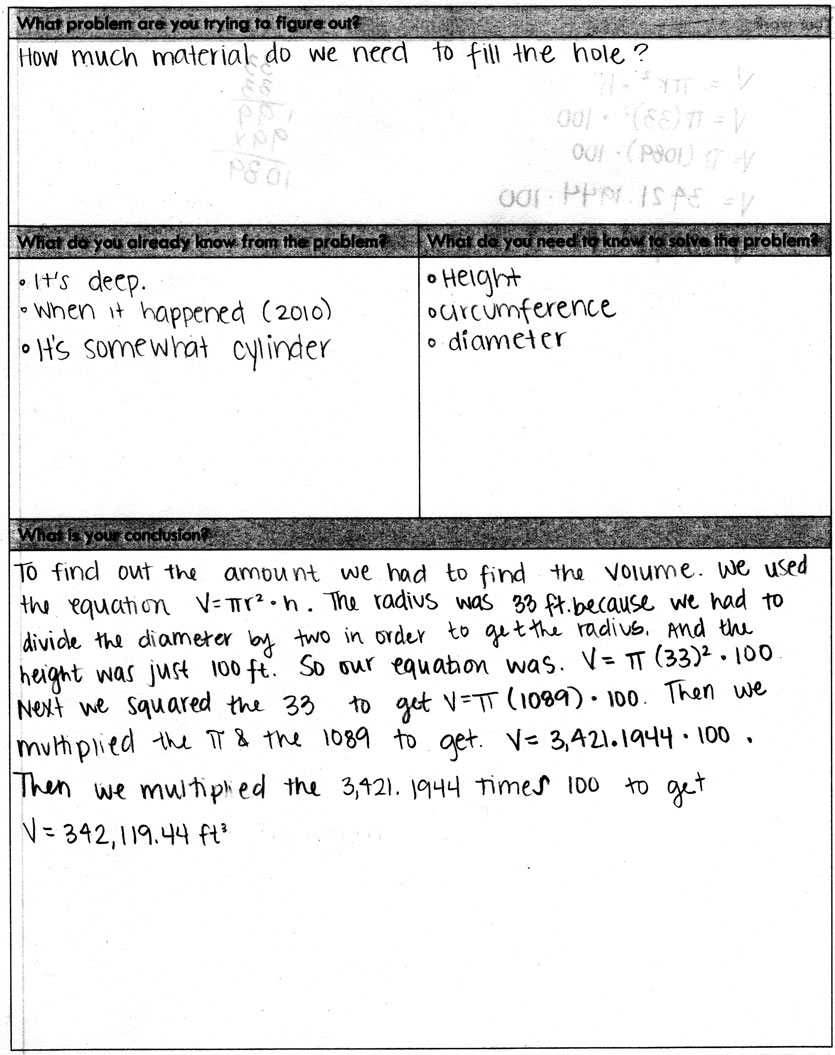 What problem are you trying to figure out?
How much material do we need to fill the hole?
What do you already know from the problem?
• It's deep.
• When it happened (2010)
• It's somewhat cylinder
What do you need to know to solve the problem?
• Height
• circumference
• diameter
What is your conclusion?
To find out the amount we had to find the volume. We used
the equation V=πr²·h. The radius was 33 ft. because we had to
divide the diameter by two in order to get the radius. And the
height was just 100 ft. So our equation was. V= π (33)² · 100
Next we squared the 33 to get V=π (1089) · 100. Then we
multiplied the π & the 1089 to get. V= 3,421.1944 · 100 .
Then we multiplied the 3,421.1944 times 100 to get
V= 342,119.44 ft³